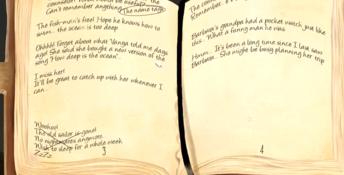 Can't remember anything. The name tag?
The fish-man's feel Hope he knows how to
swim... the ocean is too deep
Ohhhh! Forgot about what Vanga told me days
ago! She said she bought a new version of the
song "How deep is the ocean".
I miss her!
It'll be great to catch up with her whenever I
can...
Woohoo!
The old sailor is gone!
No nightmares anymore
Wish to sleep for a whole week
ZzZz
3
Remember
Barbara's grandpa had a pocket watch, just like
this. What a funny man he was
Hmm... It's been a long time since I last saw
Barbara... She might be busy planning her trip
4